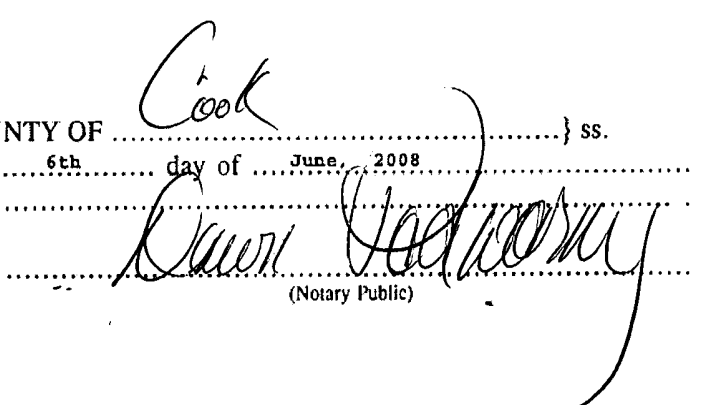 NTY OF Cook } ss.
6th day of June, 2008
Dawn
(Notary Public)